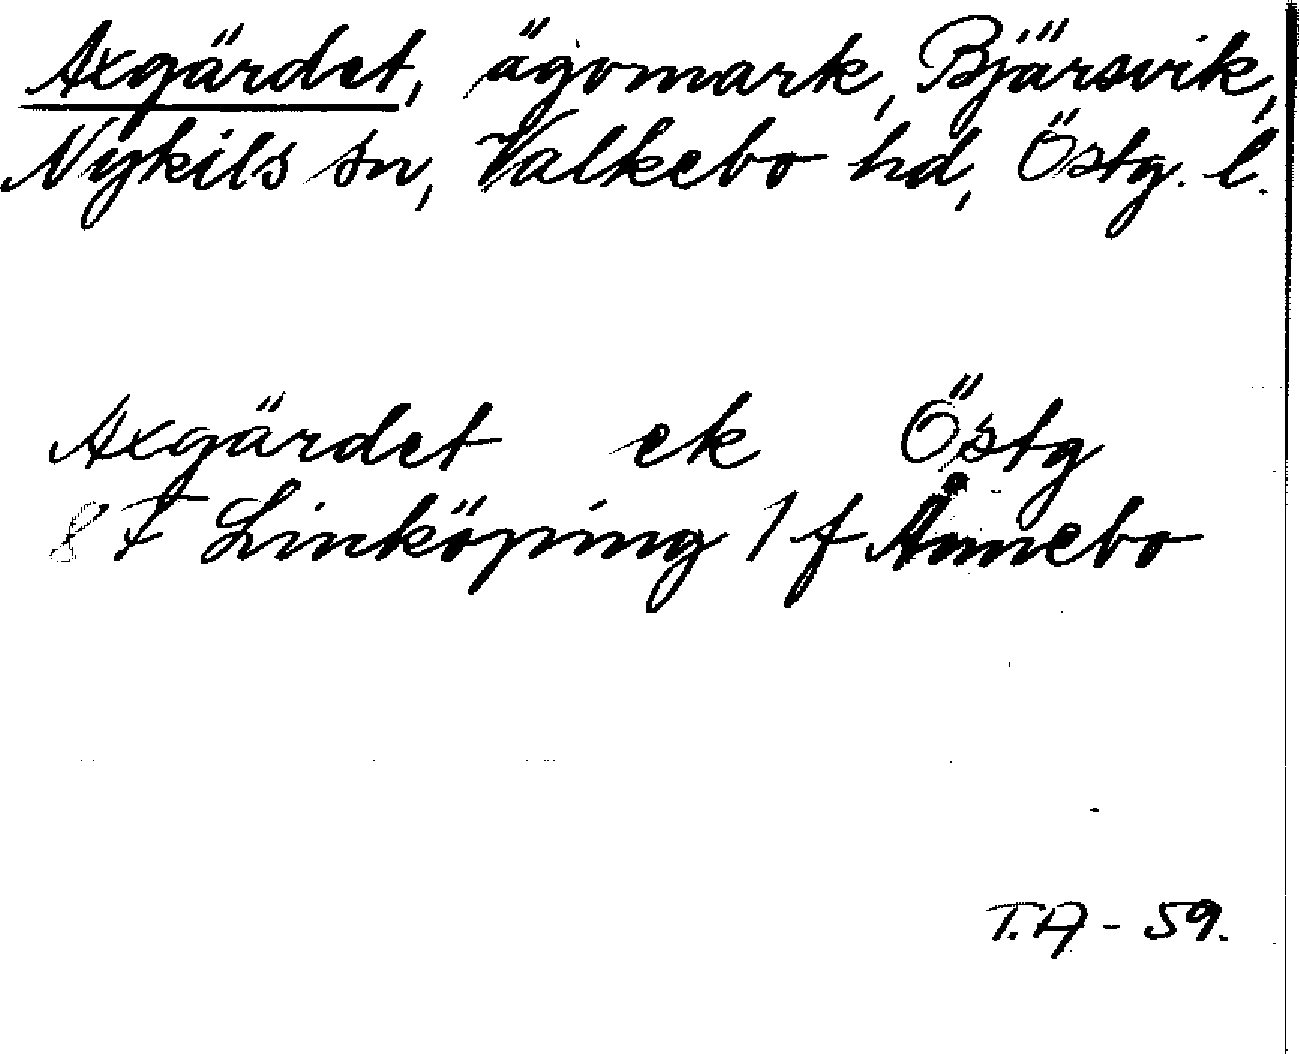 Axgärdet, ägomark, Bjärsvik,
Nykils sn, Valkebo hd, Östg. l.
Axgärdet ek Östg
8 F Linköping 1 f Ånnebo
T.A - 59.